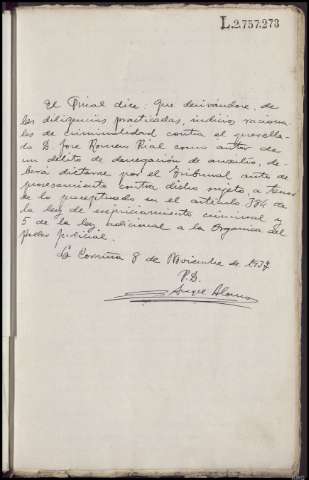 L.2.757.273
El Fiscal dice: que derivándose, de
las diligencias practicadas, indicios raciona-
les de criminalidad contra el querella-
do D. José Romero Rial como autor de
un delito de denegación de auxilio, de-
berá dictarse por el Tribunal auto de
procesamiento contra dicho sujeto, a tenor
de lo preceptuado en el artículo 384 de
la ley de enjuiciamiento criminal y
5 de la ley adicional a la Orgánica del
poder judicial.
La Coruña 8 de Noviembre de 1937
P.D.
Angel Alonso